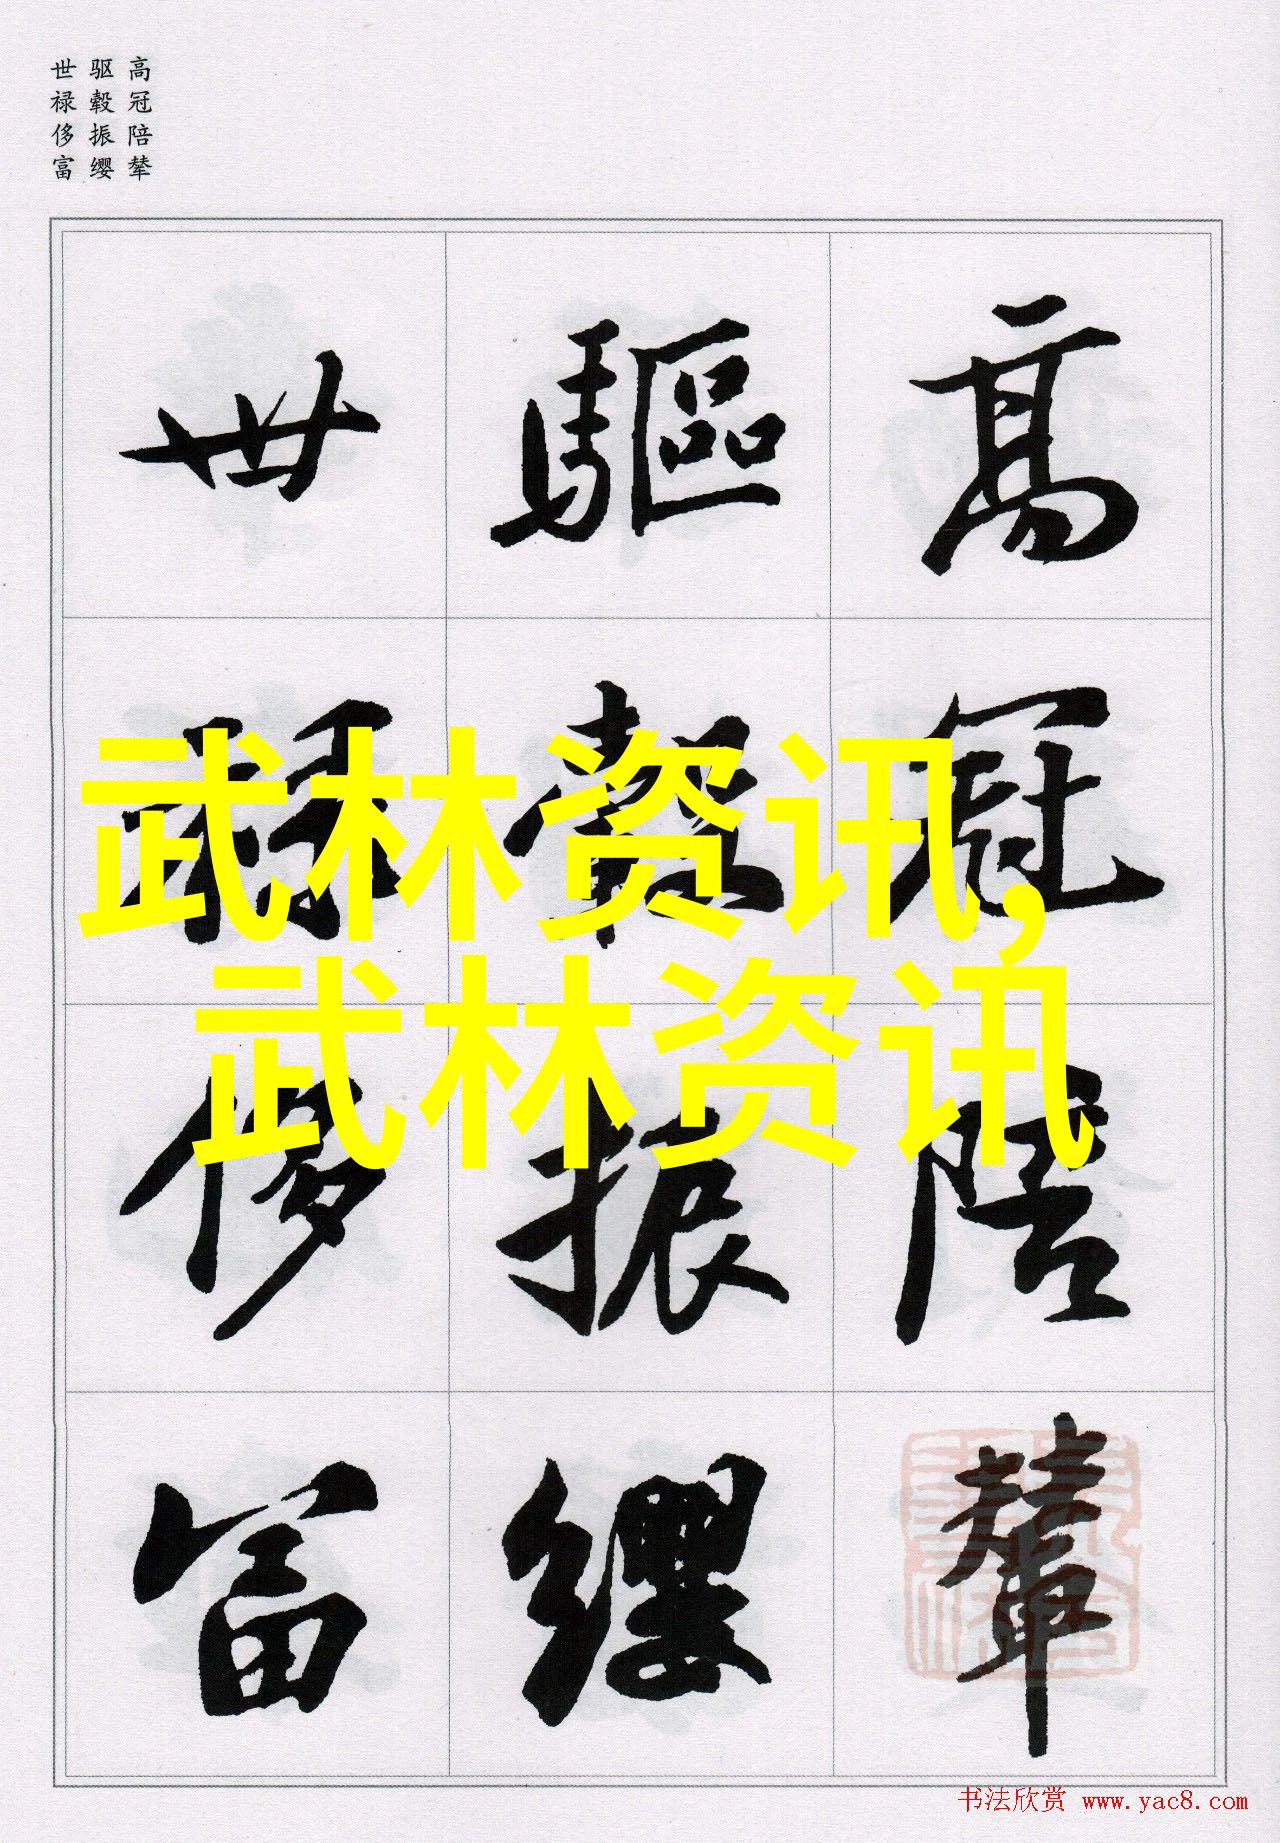 高冠陪辇
驱毂振缨
世禄侈富
高冠陪輦
驅轂振纓
世祿侈富
武林资讯,
武林资讯
书法欣赏 www.yac8.com